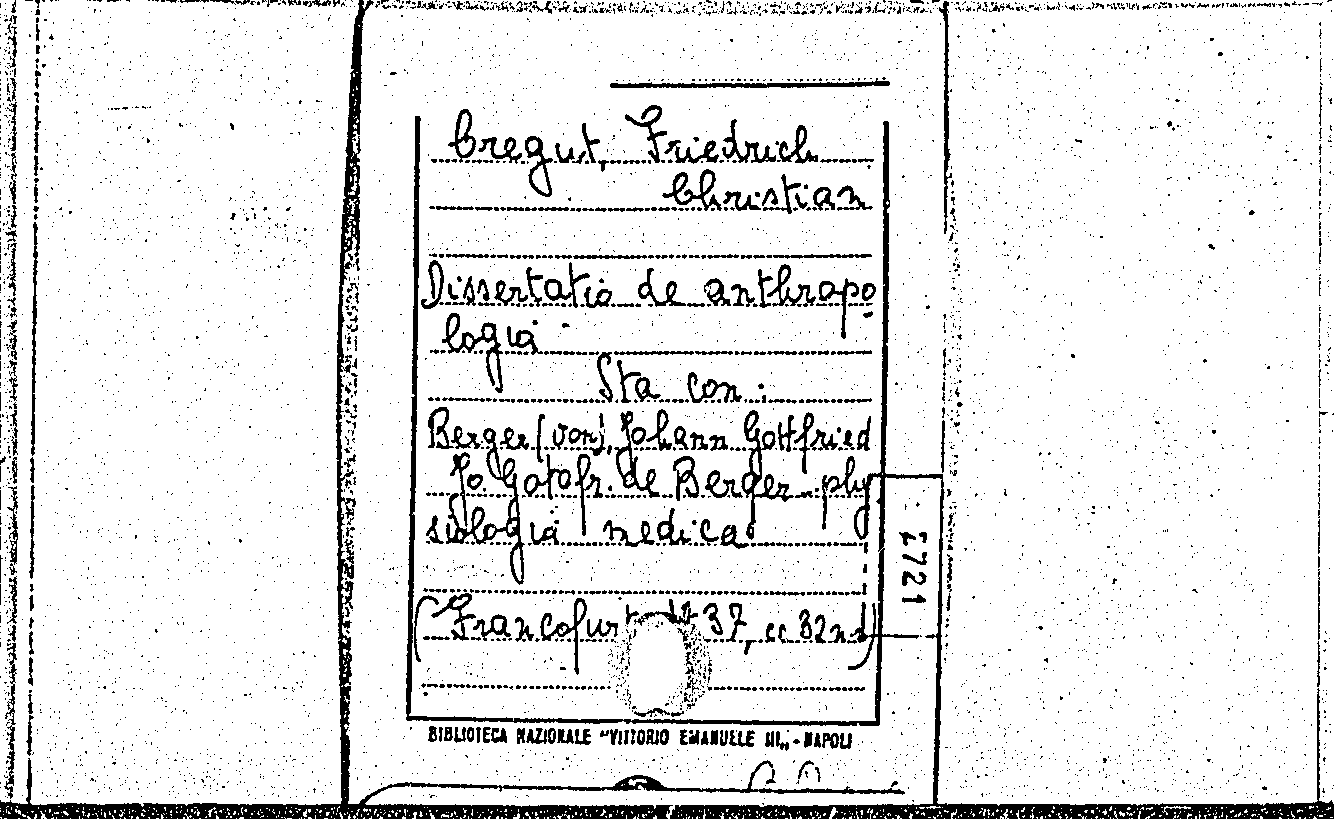 Cregut, Friedrich
Christian
Dissertatio de anthropo-
logia
Sta con:
Berger (von), Johann Gottfried
Jo. Gotofr. de Berger.. phy
siologia medica
(Francofurt 37, cc 32nn)
BIBLIOTECA NAZIONALE "VITTORIO EMANUELE III„ - NAPOLI